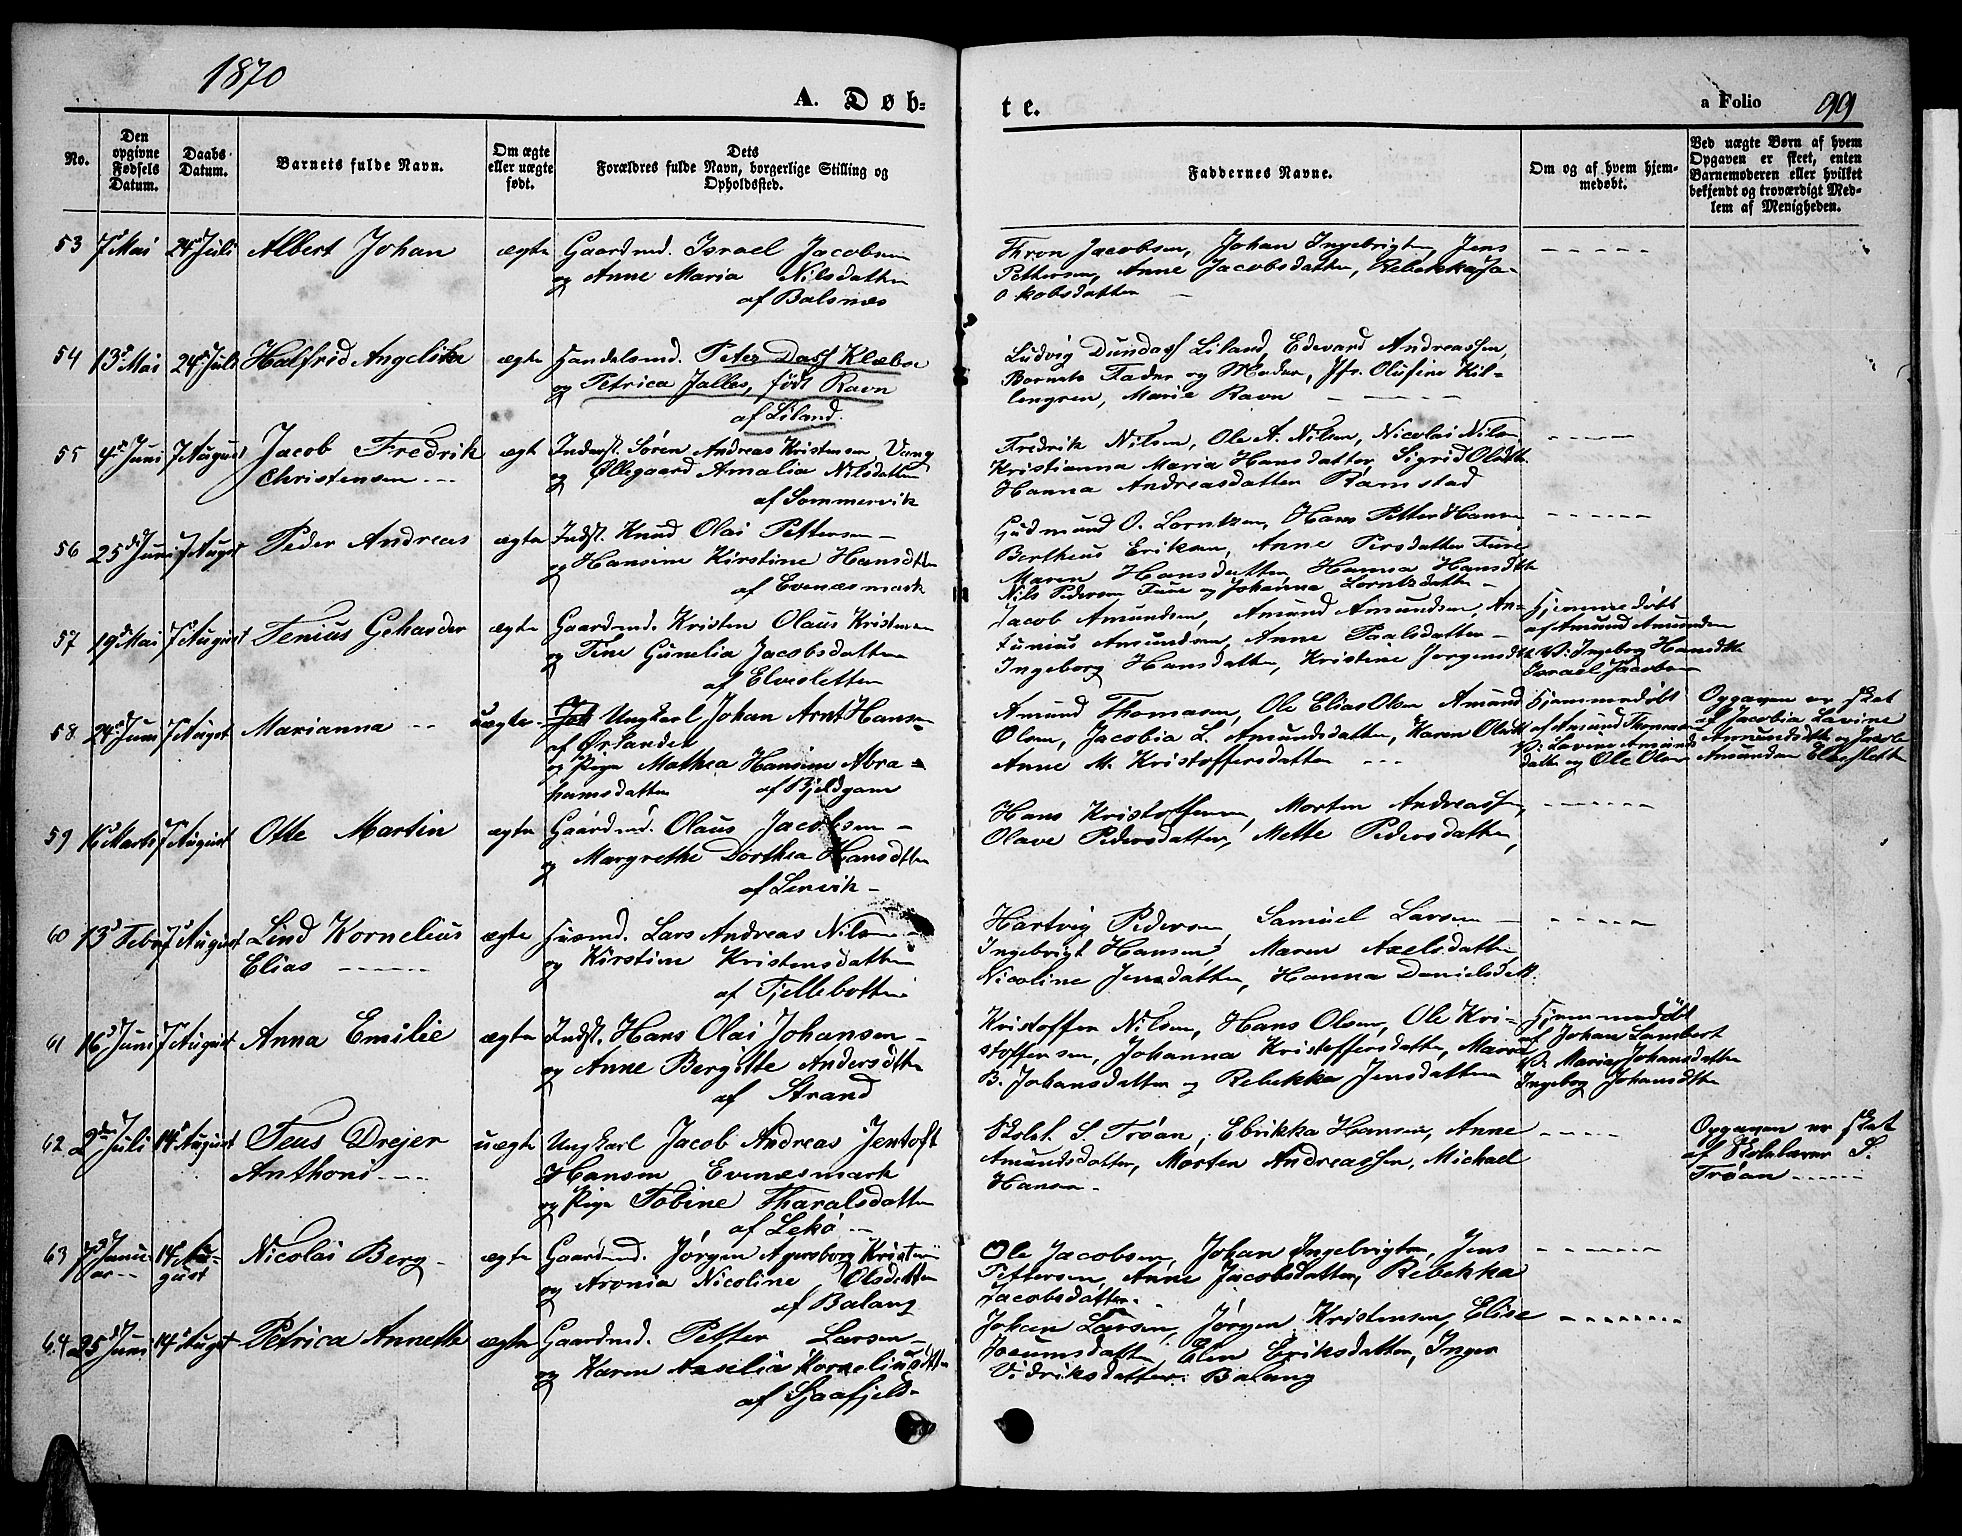 1870
A. Døb-
te.
a Folio 99
No.
Den opgivne Fødsels Datum.
Daabs Datum.
Barnets fulde Navn.
Om ægte eller uægte født.
Dets Forældres fulde Navn, borgerlige Stilling og Opholdssted.
Faddernes Navne.
Om og af hvem hjemmedøbt.
Ved uægte Børn af hvem Opgaven er skeet, enten Barnemoderen eller hvilket bekjendt og troværdigt Medlem af Menigheden.
53 7de Mai 24de Juli Albert Johan ægte Gaardmd. Israel Jacobsen
og Anne Maria Nilsdatter
af Balsnes
Thron Jacobsen, Johan Ingebrigtsen, Jens
Pettersen, Anne Jacobsdatter, Rebekka Ja-
kobsdatter
54 13de Mai 24de Juli Halfrid Angelike ægte Handelsmd. Peter Dass Klæboe
og Petrica Jalles, født Ravn
af Liland
Ludvig Dundass Liland, Edevard Andreassen,
Barnets Fader og Moder, Jfr. Olufine Kil-
lengren, Marie Ravn
55 4de Juni 7 August Jacob Fredrik ægt Inderst. Søren Andreas Kristensen Vang
Christensen og Ollegaard Amalia Nilsdatter
af Sommervik
Fredrik Nilsen, Ole A. Nilsen, Nicolai Nilsen
Kristianna Maria Hansdatter, Sigrid Olsdtr
Hanna Andreasdatter Ramstad
56 25de Juni 7 August Peder Andreas ægte Indst. Knud Olai Pettersen
og Hansine Kirstine Hansdtter
af Evenæsmark
Gudmund O. Lorntzen, Hans Petter Hansen
Bertheus Eriksen, Anne Persdatter Ture
Maren Hansdatter, Hanna Hansdtr
Nils Pedersen Ture og Johanna Lorntzdatter
57 19de Mai 7 August Tenius Gehardor ægte Gaardmd. Kristen Olaus Kristensen
og Tine Gunelia Jacobsdatter
af Elvesletten
Jacob Amundsen, Amund Amundsen, An-
tunius Amundsen, Anne Paalsdatter
Ingeborg Hansdatter, Kristine Jørgensdtr
Hjemmedøbt
af Amund Amundsen
W: Ingeborg Hansdtr
Israel Jacobsen
58 24de Juni 7 August Marianna uægte Ungkarl Johan Arnt Hansen
af Ørlandet
og Pige Mathea Hansine Abra-
hamsdatter af Bjeldgam
Amund Thomasen, Ole Elias Olsen Amund
Olsen, Jacobia L. Amundsdatter, Karen Olsdtr
Anne M. Kristoffersdatter
Hjemmedøbt
af Amund Thomasen
W: Lavine Amunds
datter og Ole Olsen
Opgaven er skeet
af Jacobia Lavine
Amundsdtr og Jacob
Amundsen Elvesletten
59 16 Marts 7 August Otte Martin ægte Gaardmd. Olaus Jacobsen
og Margrethe Dorthea Hansdtter
af Lenvik
Hans Kristoffersen, Morten Andreass.,
Olave Pedersdatter, Mette Pedersdatter,
60 13de Febr 7 August Lind Kornelius ægte Husmd. Lars Andreas Nilsen
Elias og Kirstine Kristensdatter
af Tjellebotten
Hartvig Pedersen, Samuel Larsen
Ingebrigt Hansen, Maren Axelsdatter
Nicoline Jensdatter, Hanna Danielsdtr.
61 16de Juni 7 August Anna Emilie ægte Indst. Hans Olai Johansen
og Anne Bergitte Andersdtter
af Strand
Kristoffer Nilsen, Hans Olsen, Ole Kri-
stoffersen, Johanna Kristoffersdatter, Maria
B. Johansdatter og Rebekka Jensdatter
Hjemmedøbt
af Johan Lambert
W: Maria Johansdatter
Ingeborg Johansdtter
62 2den Juli 14 August Teus Drejer uægte Ungkarl Jacob Andreas Jentoft
Anthoni Hansen Evenæsmark
og Pige Tobine Tharalsdatter
af Lekø
Skolel. S. Trøan, Ebrikka Hansen, Anne
Amundsdatter, Morten Andreassen, Mickael
Hansen
Opgaven er skeet
af Skolelærer S.
Trøan
63 7de Janu- 14 Au- Nicolai Berg ægte Gaardmd. Jørgen Agersborg Kristen
ar gust og Aronia Nicoline Olsdatter
af Balang
Ole Jacobsen, Johan Ingebrigtsen, Jens
Pettersen, Anne Jacobsdatter, Rebekka
Jacobsdatter
64 25de Juni 14 August Petrica Annette ægte Gaardmd. Petter Larsen
og Karen Anselia Korneliusdtter
af Sjaafjeld
Johan Larsen, Jørgen Kristensen, Elise
Joeumsdatter, Elen Eriksdatter, Inger
Didriksdatter Balang